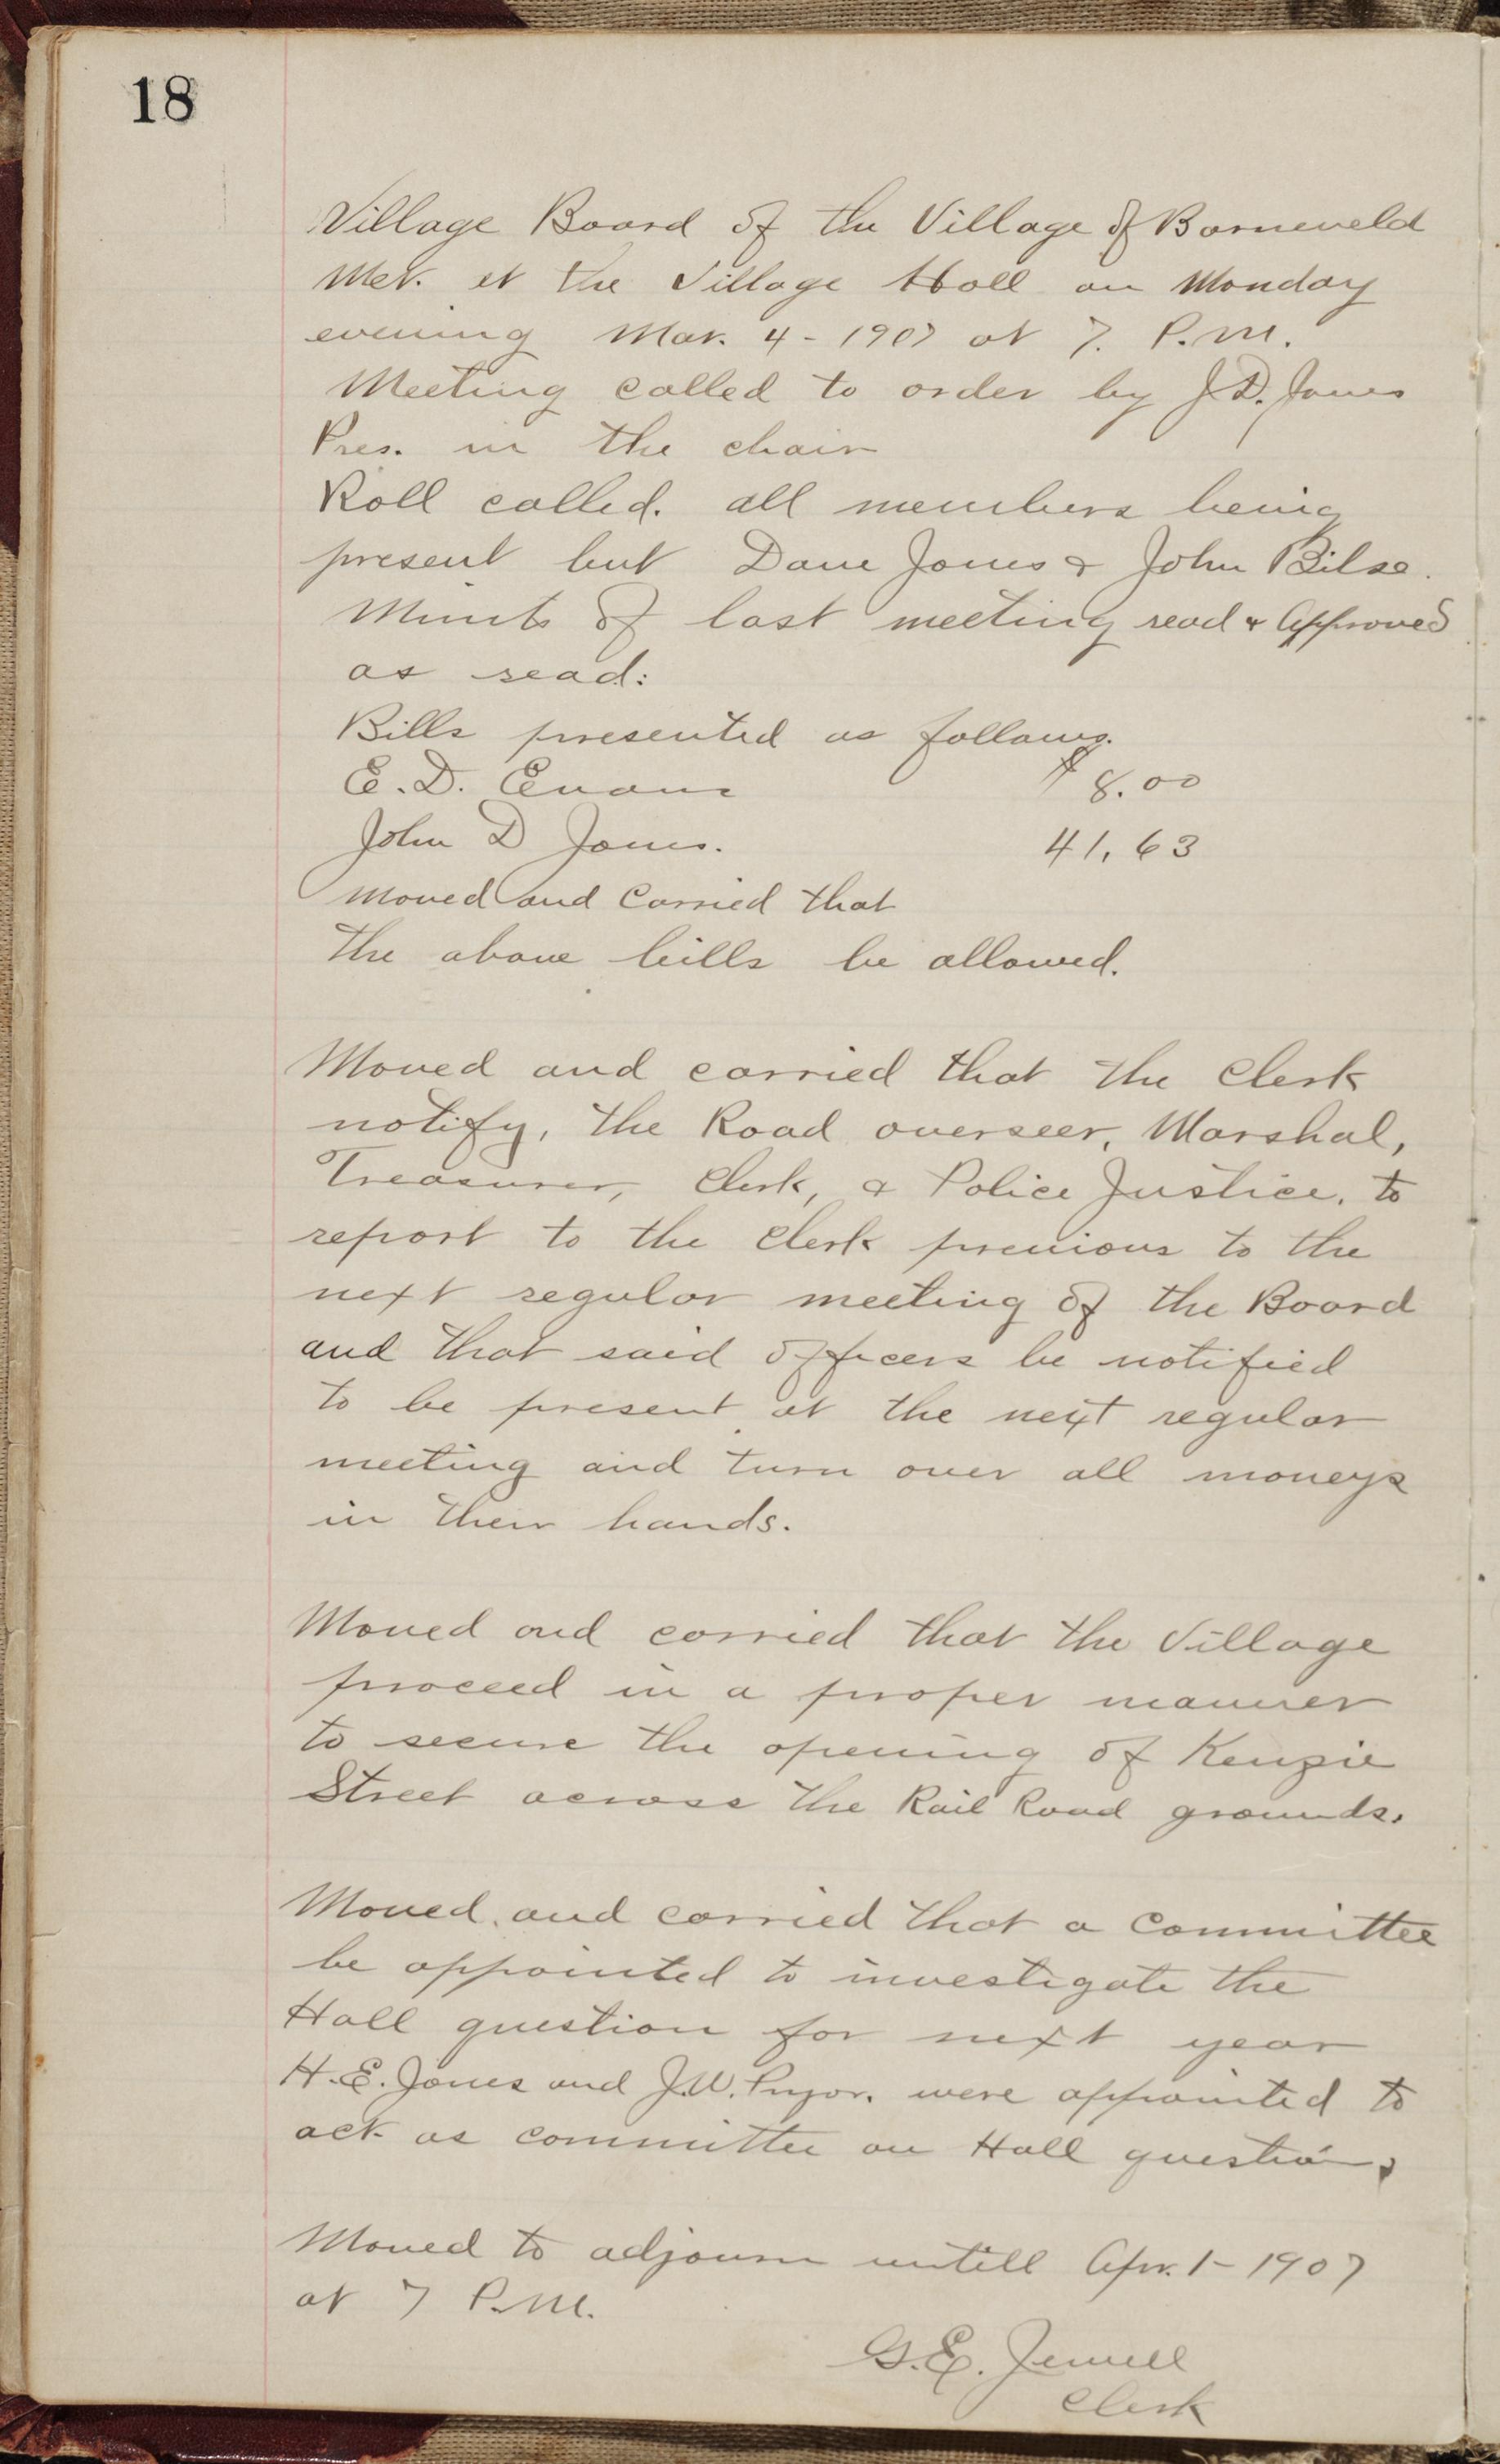 18
Village Board of the Village of Barneveld
Met. at the Village Hall on Monday
evening Mar. 4 - 1907 at 7. P.M.
Meeting called to order by J.D. Jones
Pres. in the chair
Roll called. all members being
present but Dave Jones & John Bilse.
Minuts of last meeting read & Approved
as read:
Bills presented as follows.
E. D. Evans $ 8.00
John D Jones. 41,63
Moved and Carried that
the above bills be allowed.
Moved and carried that the Clerk
notify, the Road overseer, Marshal,
Treasurer, Clerk, & Police Justice. to
report to the Clerk previous to the
next regular meeting of the Board
and that said officers be notified
to be present at the next regular
meeting and turn over all moneys
in their hands.
Moved and carried that the Village
proceed in a proper manner
to secure the opening of Kenzie
Street across the Rail Road grounds.
Moved. and carried that a Committee
be appointed to investigate the
Hall question for next year
H. E. Jones and J.W. Pryor. were appointed to
act as committee on Hall question,
Moved to adjourn untill Apr. 1 - 1907
at 7 P.M.
G. E. Jewell
Clerk